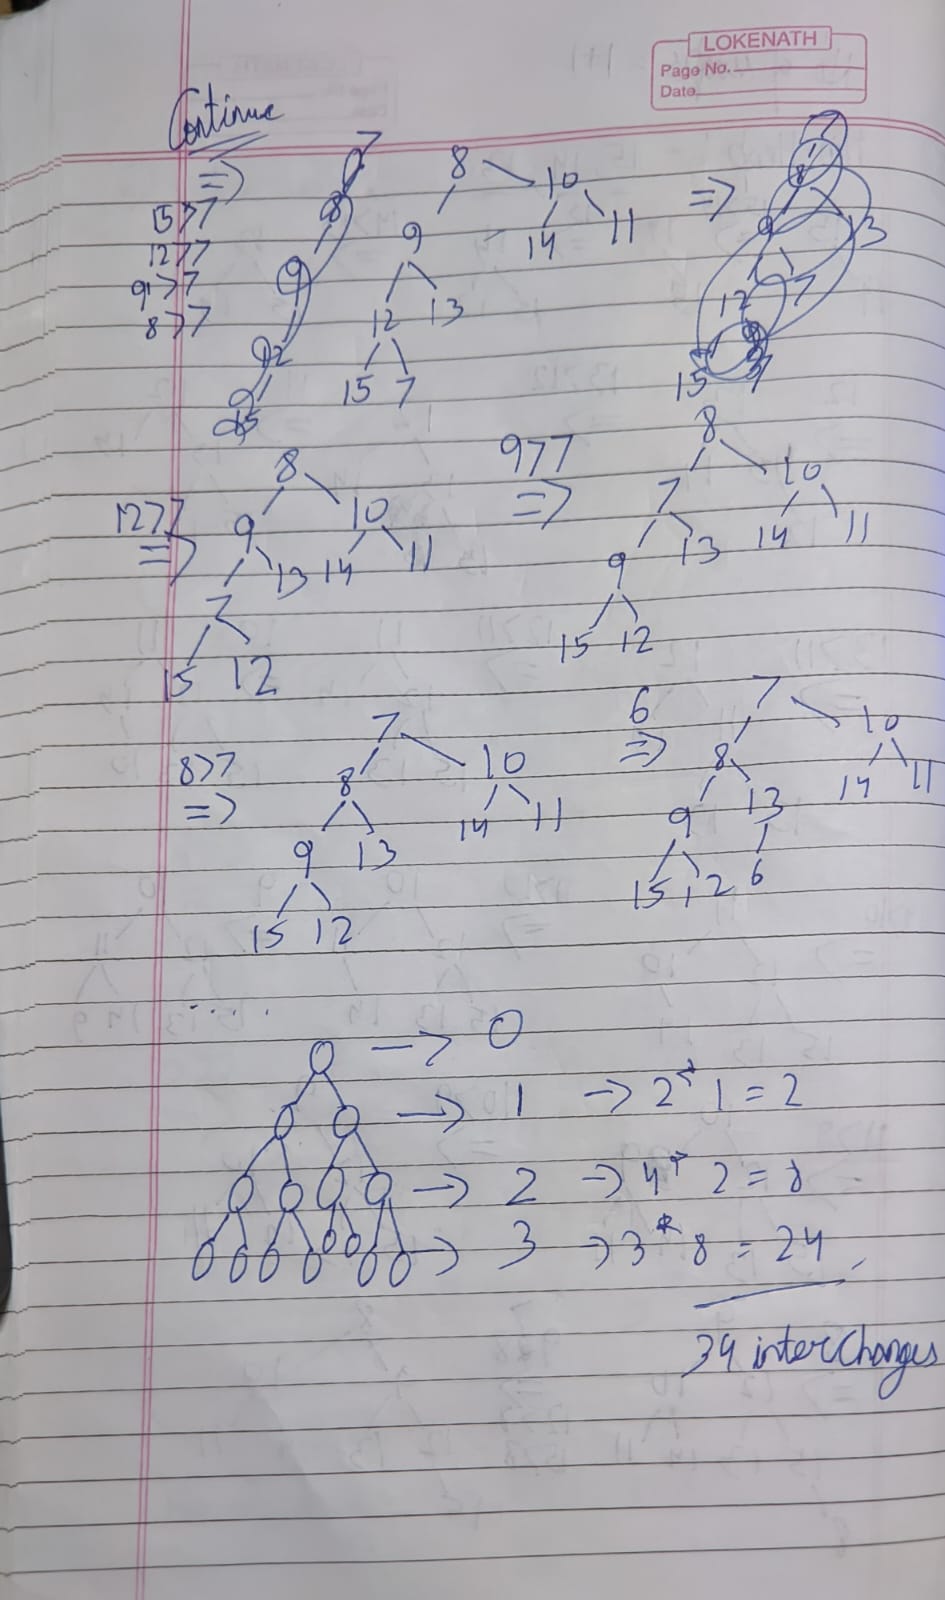 LOKENATH
Page No.
Date
Continue
=>
15>7
12>7
9>7
8>7
8
10
9
14 11
12 13
15 7
=>
12>7
=>
8
9 10
7 13 14 11
15 12
977
=>
8
7 10
9 13 14 11
15 12
8>7
=>
7
8 10
9 13 14 11
15 12
6
=>
7
8 10
9 13 14 11
15 12 6
....
-> 0
-> 1 -> 2* 1 = 2
-> 2 -> 4* 2 = 8
-> 3 -> 3* 8 = 24
34 interchanges